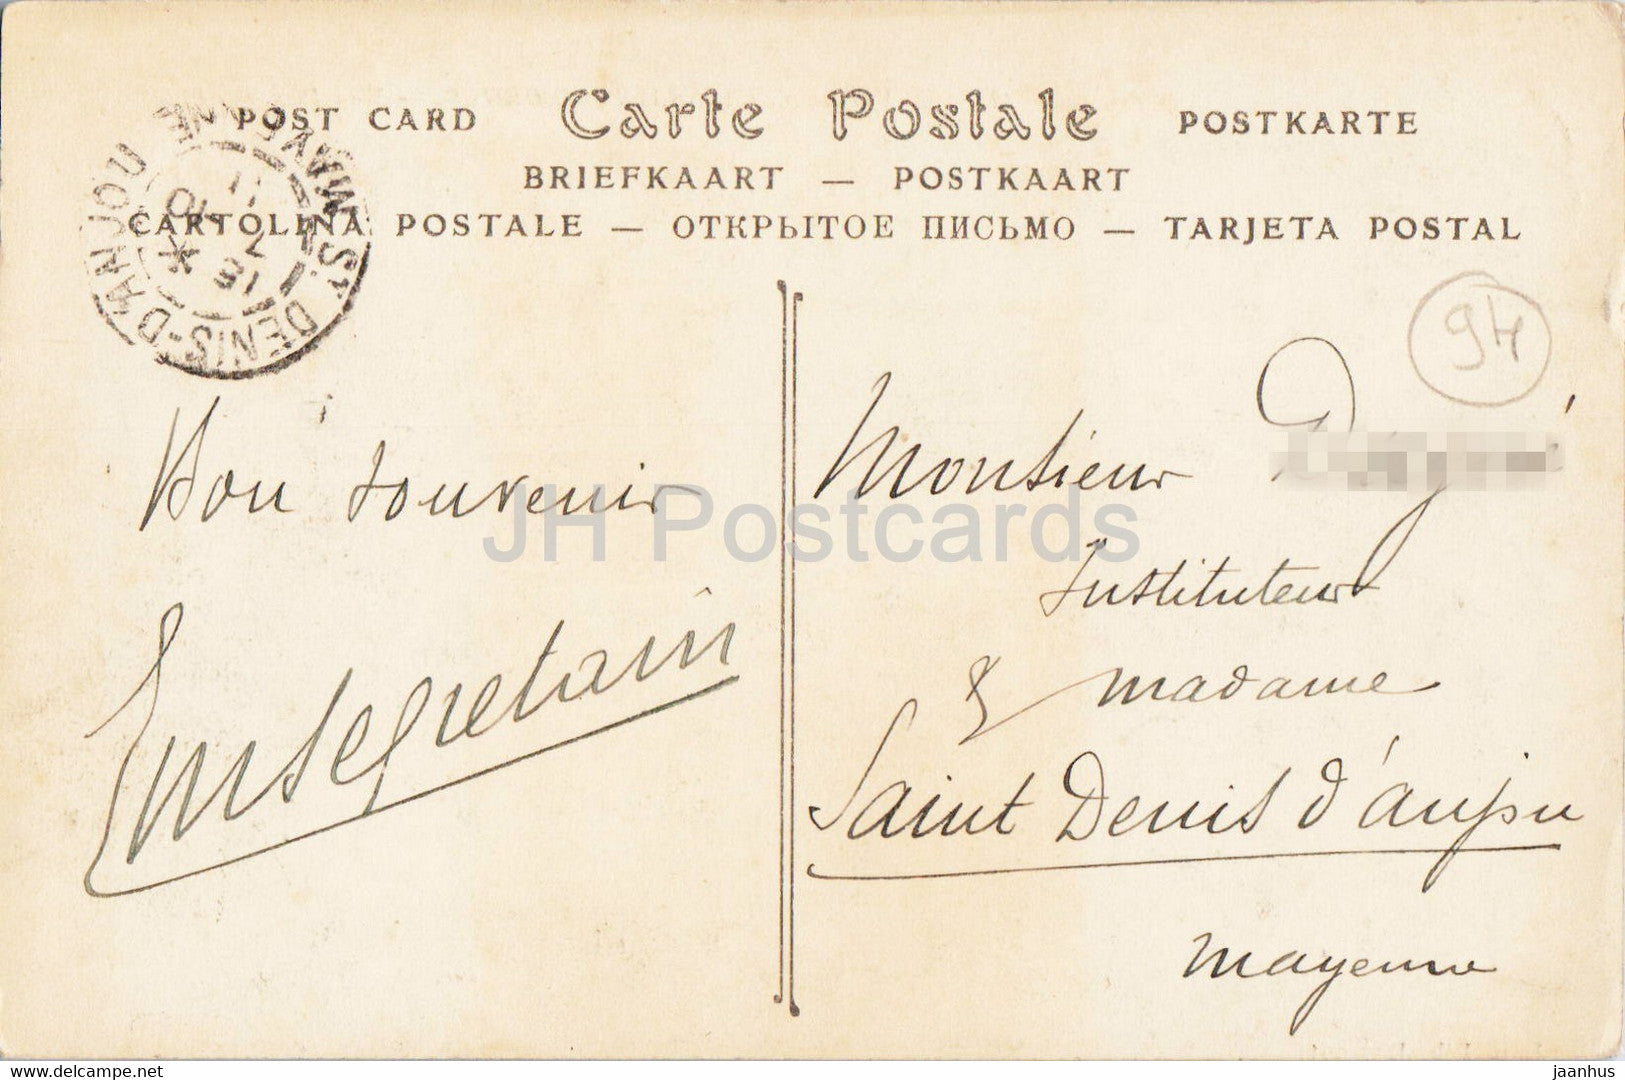 POST CARD Carte Postale POSTKARTE
BRIEFKAART — POSTKAART
CARTOLINA POSTALE — ОТКРЫТОЕ ПИСЬМО — TARJETA POSTAL
ST DENIS-D'ANJOU MAYENNE
94
Bon souvenir
Segretain
Monsieur
Instituteur
& madame
Saint Denis d'anjou
mayenne
JH Postcards
delcampe.net
jaanhus